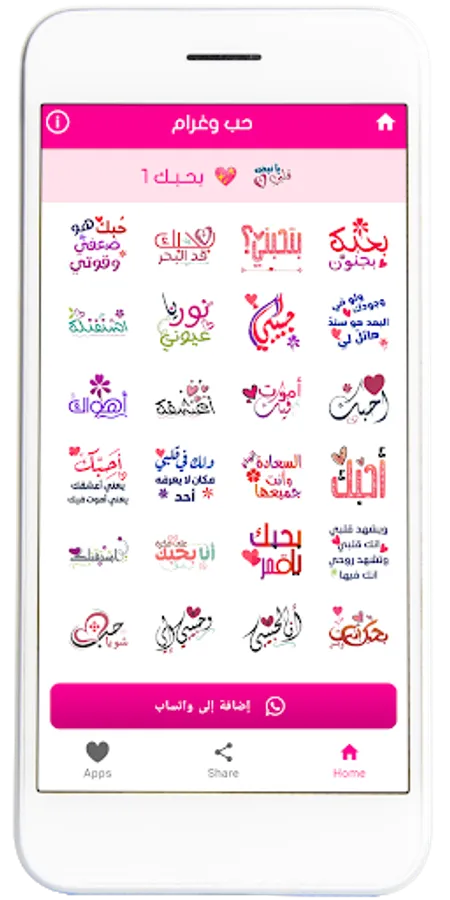 حب وغرام
يا نبض
قلبي
بحبك 1
بحبك
بجنون
بتحبني؟
بحبك
قد البحر
حُبك هو
ضعفي
وقوتي
ولو في
وجودك
البعد هو سند
هائل لي
حبيبي
نور يا
عيوني
اشتقتلك
احبك
أموت
فيك
أعشقك
أهواك
أحبك
السعادة
وأنت
جميعها
ولك في قلبي
مكان لا يعرفه
أحد
أحبك
يعني أعشقك
يعني أموت فيك
ويشهد قلبي
انك قلبي
وتشهد روحي
انك فيها
بحبك
ياقمر
أنا بحبك
اشتقتلك
إضافة إلى واتساب
Apps
Share
Home